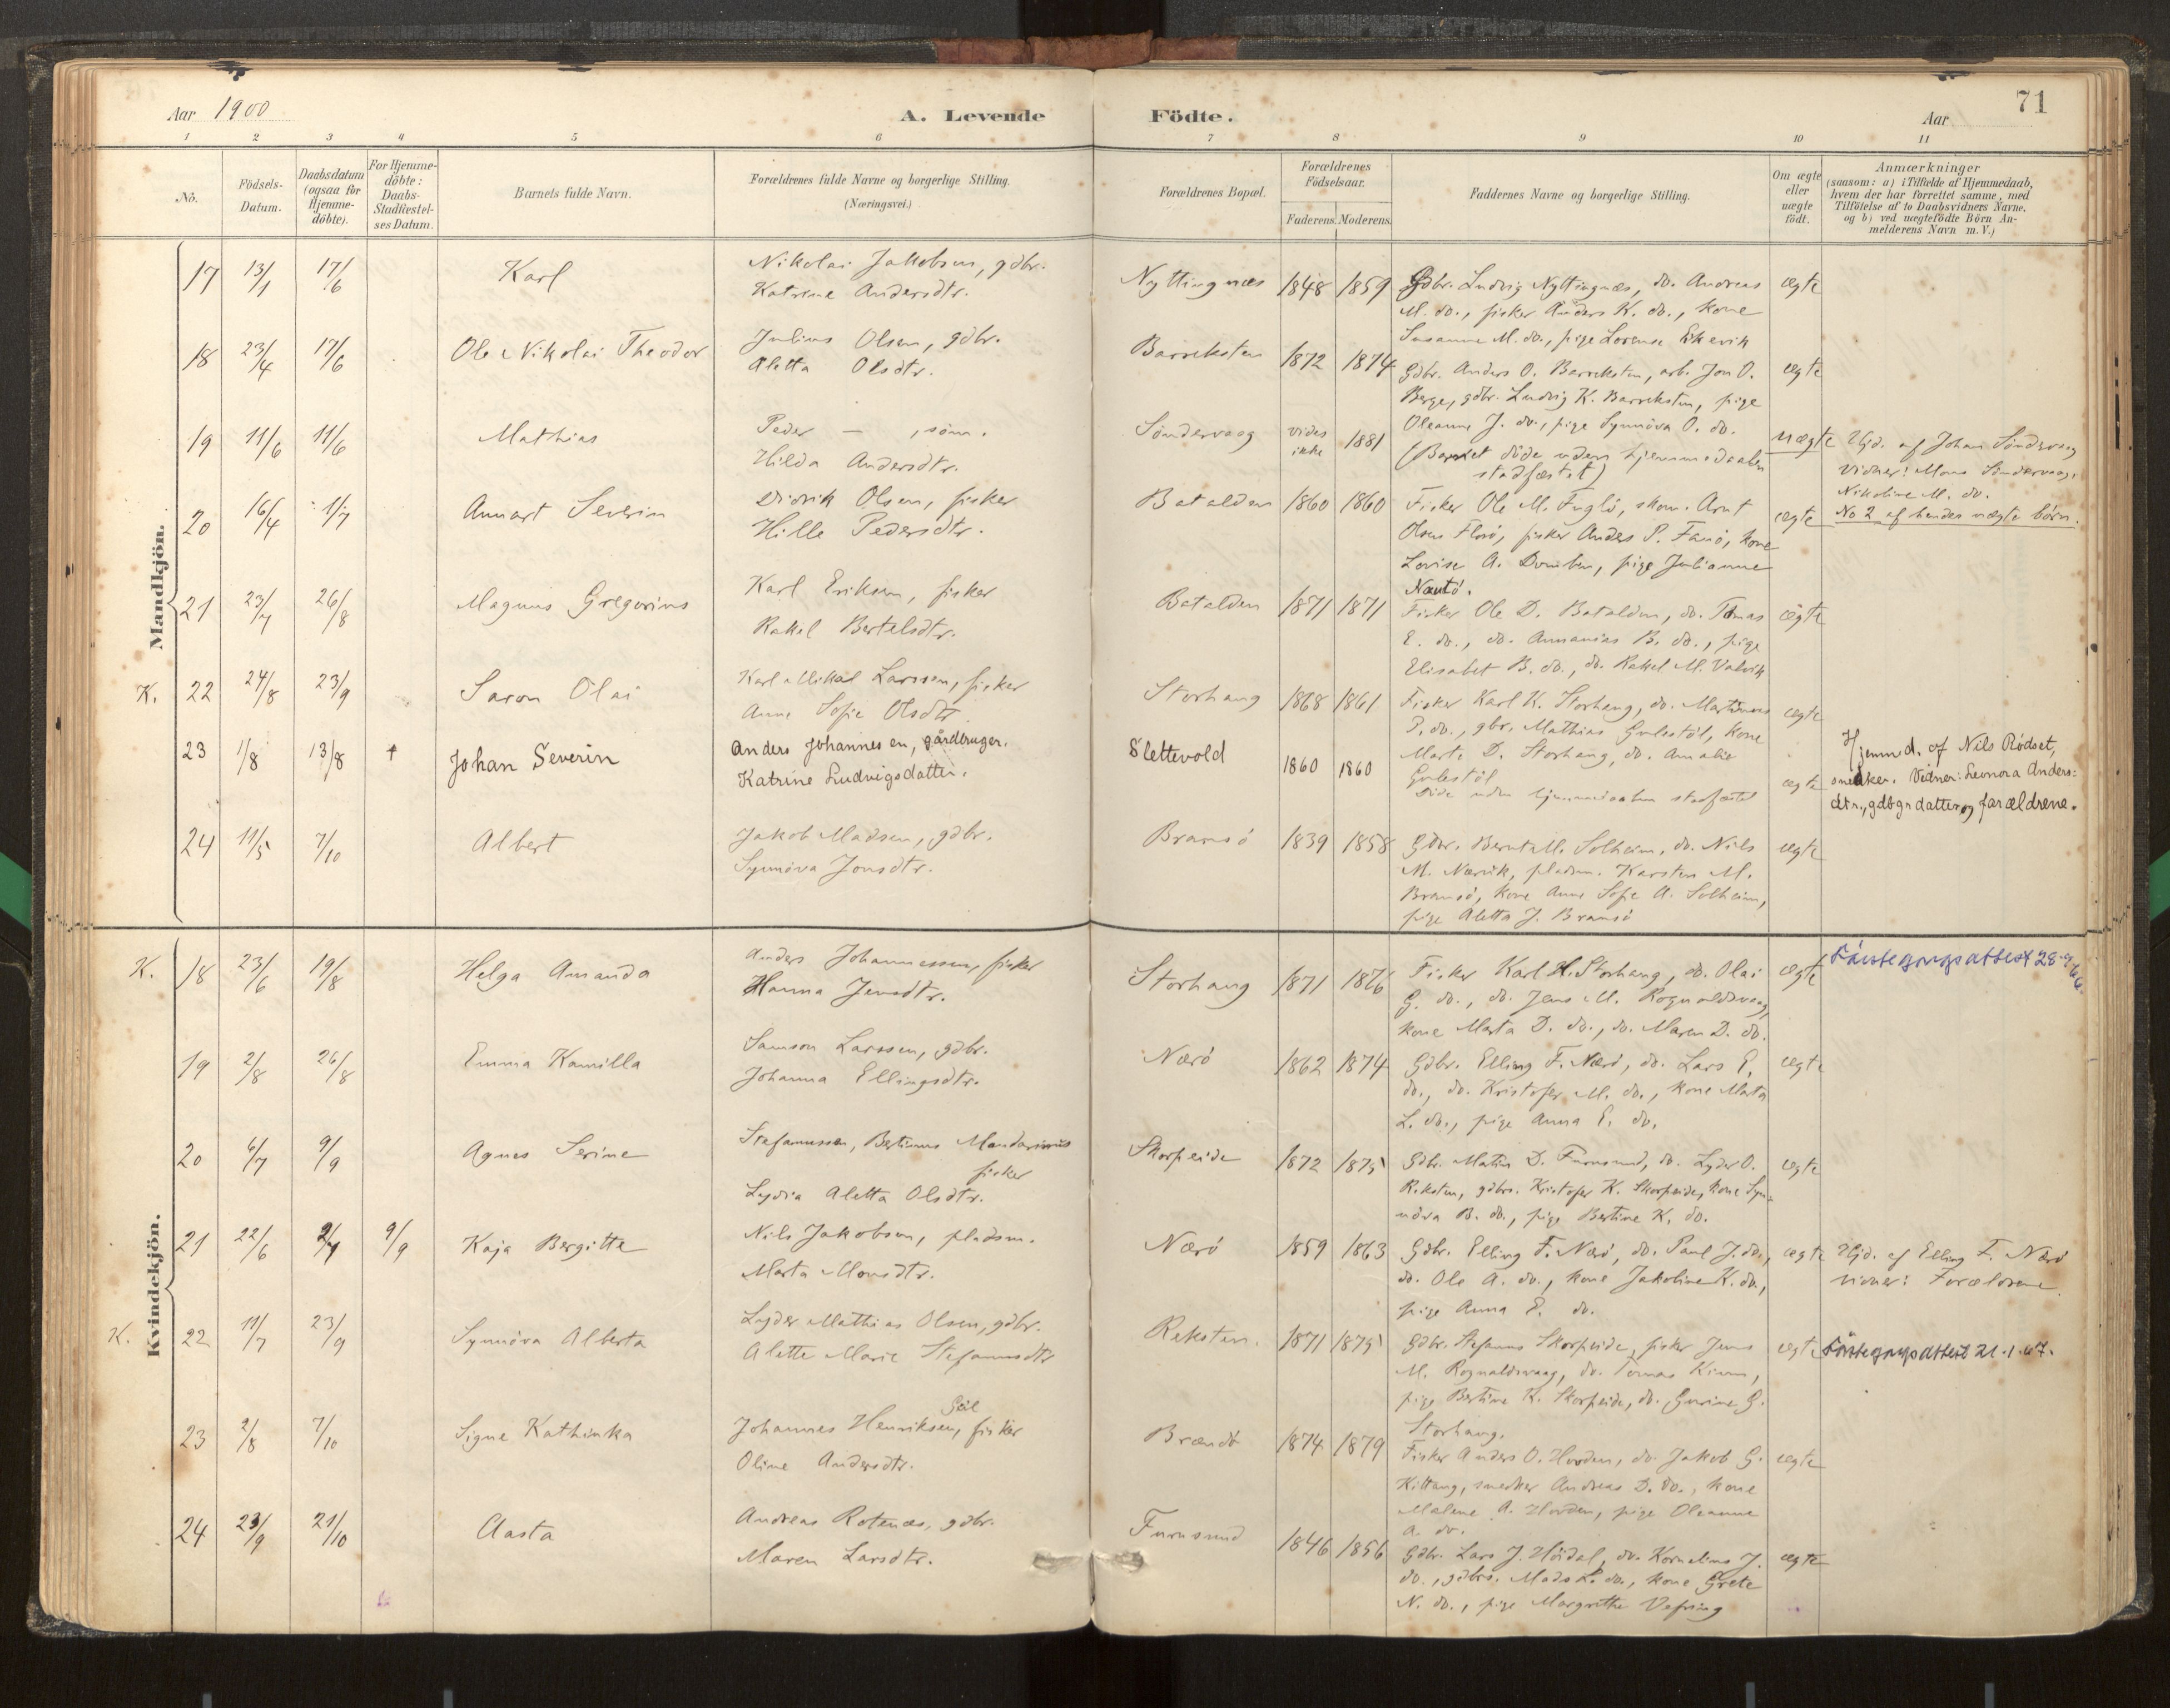 71
Aar 1900
A. Levende Födte.
Aar
1 2 3 4 5 6 7 8 9 10 11
No.
Födsels-Datum.
Daabsdatum (ogsaa for Hjemmedöbte).
For Hjemmedöbte: Daabs-Stadfæstelses Datum.
Barnets fulde Navn.
Forældrenes fulde Navne og borgerlige Stilling. (Næringsvei.)
Forældrenes Bopæl.
Forældrenes Födselsaar.
Faderens. Moderens.
Faddernes Navne og borgerlige Stilling.
Om ægte eller uægte födt.
Anmærkninger
(saasom: a) i Tilfælde af Hjemmedaab, hvem der har forrettet samme, med Tilföielse af to Daabsvidners Navne, og b) ved uægtefödte Börn Anmelderens Navn m. V.)
Mandkjön.
17 13/1 17/6 Karl
Nikolai Jakobsen, gdbr.
Katrine Andersdtr.
Nyttingnæs 1848 1859
Gdbr. Ludvig Nyttingnæs, do. Andreas
M. do., fisker Anders K. do., kone
Susanne M. do., pige Lorense Eikevik
ægte
18 23/4 17/6 Ole Nikolai Theodor
Julius Olsen, gdbr.
Aletta Olsdtr.
Barreksten 1872 1874
Gdbr. Anders O. Barreksten, arb. Jon O.
Berge, gdbr. Ludvig K. Barreksten, pige
Oleanne J. do., pige Synnöva O. do.
ægte
19 11/6 11/6 Mathias
Peder — , söm.
Hilda Andersdtr.
Söndervaag vides ikke 1881
(Barnet döde uden hjemmedaaben
stadfæstet)
uægte
Hjd. af Johan Söndervaag
Vidner: Mons Söndervaag,
Nikoline M. do.
No 2 af hendes uægte börn.
20 16/4 1/7 Annart Severin
Didrik Olsen, fisker
Hille Pedersdtr.
Batalden 1860 1860
Fisker Ole M. Fuglö, skom. Arnt
Olsen Florö, fisker Anders P. Fanö, kone
Lovise A. Domben, pige Julianne
Nautö.
ægte
21 23/7 26/8 Magnus Gregorius
Karl Eriksen, fisker
Rakel Bertelsdtr.
Batalden 1871 1871
Fisker Ole D. Batalden, do. Tomas
E. do., do. Annanias B. do., pige
Elisabet B. do., do. Rakel M. Valvik
ægte
K. 22 24/8 23/9 Saron Olai
Karl Mikal Larssen, fisker
Anne Sofie Olsdtr.
Storhaug 1868 1861
Fisker Karl K. Storhaug, do. Martinus
P. do., gbr. Mathias Gulestöl, kone
Marte D. Storhaug, do. Amalie
Gulestöl
ægte
23 1/8 13/8 † Johan Severin
Anders Johannesen, gårdbruger.
Katrine Ludvigsdatter.
Slettevold 1860 1860
Döde uden hjemmedaaben stadfæstet
ægte
Hjemmed. af Nils Rødset,
snedker. Vidner: Leonora Anders=
dtr., gdbgr datter og forældrene.
24 11/5 7/10 Albert
Jakob Madsen, gdbr.
Synnöva Jonsdtr.
Bramsö 1839 1858
Gdbr. Bernt M. Solheim, do. Nils
M. Nærvik, pladsm. Karsten M.
Bramsö, kone Anne Sofie A. Solheim,
pige Aletta J. Bramsö
ægte
Kvindekjön.
K. 18 23/6 19/8 Helga Amanda
Anders Johannessen, fisker
Hanna Jensdtr.
Storhaug 1871 1876
Fisker Karl H. Storhaug, do. Olai
G. do., do. Jens M. Rognaldsvaag,
kone Marta D. do., do. Maren D. do.
ægte
Førstegangsattest 28-9-66.
19 2/8 26/8 Emma Kamilla
Samson Larssen, gdbr.
Johanna Ellingsdtr.
Nærö 1862 1874
Gdbr. Elling F. Nærö, do. Lars E.
do., do. Kristofer M. do., kone Marta
L. do., pige Anna E. do.
ægte
20 6/7 9/9 Agnes Serine
Stefanussen, Bertinus Mandarinus
fisker
Lydia Aletta Olsdtr.
Skorpeide 1872 1875
Gdbr. Martin D. Furusund, do. Lyder O.
Reksten, gdbrs. Kristofer K. Skorpeide, kone Syn-
növa B. do., pige Bertine K. do.
ægte
21 22/6 2/7 9/9 Kaja Bergitte
Nils Jakobsen, pladsm.
Marta Monsdtr.
Nærö 1859 1863
Gdbr. Elling F. Nærö, do. Paul J. do.,
do. Ole A. do., kone Jakoline K. do.,
pige Anna E. do.
ægte
Hjd. af Elling F. Nærö
vidner: Forældrene.
K. 22 11/7 23/9 Synnöva Alberta
Lyder Mathias Olsen, gdbr.
Alette Marie Stefanusdtr
Reksten. 1871 1875
Gdbr. Stefanus Skorpeide, fisker Jens
M. Rognaldsvaag, do. Tomas Kinn,
pige Bertine K. Skorpeide, do. Gurine G.
Storhaug.
ægte
Førstegangsattest 21.1.67.
23 2/8 7/10 Signe Kathinka
Johannes Henriksen, fisker
Oline Andersdtr.
Brandö 1874 1879
Fisker Anders O. Horden, do. Jakob G.
Kittang, snedker Andreas D. do., kone
Malene A. Horden, pige Oleanne
A. do.
ægte
24 23/9 21/10 Aasta
Andreas Rotenæs, gdbr.
Maren Larsdtr.
Furusund 1846 1856
Gdbr. Lars J. Höidal, do. Kornelius J.
do., gdbrs. Mads L. do., kone Grete
N. do., pige Margrethe Vefring
ægte